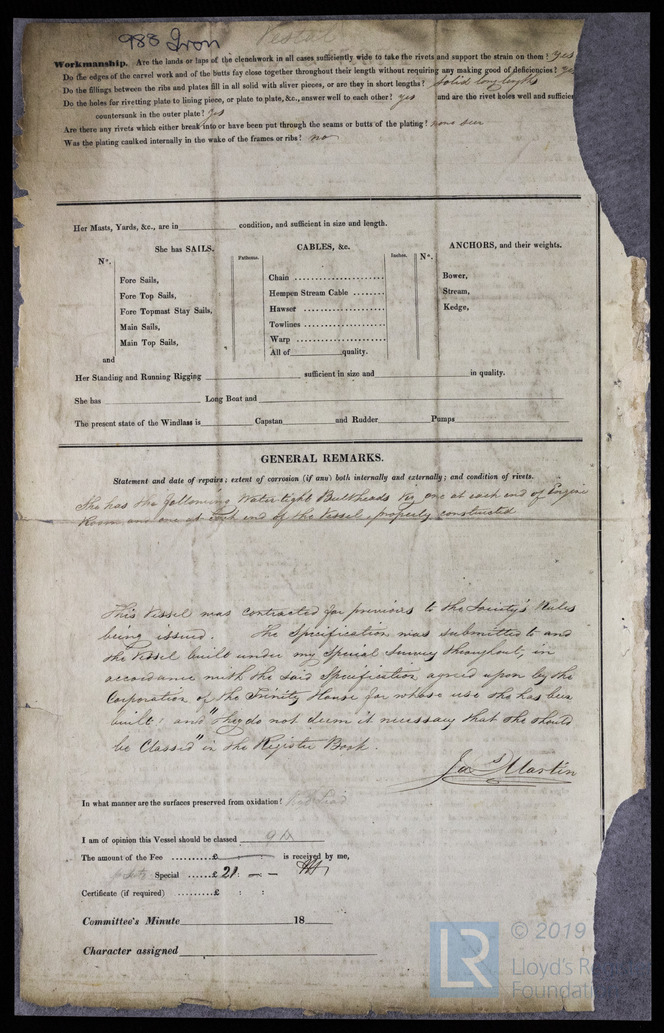 988 Iron
Vestal
Workmanship. Are the lands or laps of the clenchwork in all cases sufficiently wide to take the rivets and support the strain on them? yes
Do the edges of the carvel work and of the butts fay close together throughout their length without requiring any making good of deficiencies? yes
Do the fillings between the ribs and plates fill in all solid with sliver pieces, or are they in short lengths? Solid long lengths
Do the holes for rivetting plate to lining piece, or plate to plate, &c., answer well to each other? yes and are the rivet holes well and sufficien
countersunk in the outer plate? yes
Are there any rivets which either break into or have been put through the seams or butts of the plating? none seen
Was the plating caulked internally in the wake of the frames or ribs? no
Her Masts, Yards, &c., are in condition, and sufficient in size and length.
She has SAILS. CABLES, &c. ANCHORS, and their weights.
N°. Fathoms. Inches. N°.
Fore Sails, Chain Bower,
Fore Top Sails, Hempen Stream Cable Stream,
Fore Topmast Stay Sails, Hawser Kedge,
Main Sails, Towlines
Main Top Sails, Warp
and All of quality.
Her Standing and Running Rigging sufficient in size and in quality.
She has Long Boat and
The present state of the Windlass is Capstan and Rudder Pumps
GENERAL REMARKS.
Statement and date of repairs; extent of corrosion (if any) both internally and externally; and condition of rivets.
She has the following Watertight Bulkheads viz one at each end of Engine
Room and one at each end of the Vessel, properly constructed
This Vessel was contracted for previous to the Society's Rules
being issued. The Specification was submitted to and
the Vessel built under my Special Survey throughout, in
accordance with the said Specification agreed upon by the
Corporation of the Trinity House for whose use she has been
built; and "they do not deem it necessary that she should
be Classed" in the Register Book.
Jas Martin
In what manner are the surfaces preserved from oxidation? Red Lead
I am of opinion this Vessel should be classed
The amount of the Fee £ : : is received by me,
Special £ 21 : – : –
Certificate (if required) £ : :
Committee's Minute 18
Character assigned
LR © 2019
Lloyd's Re
Foundati